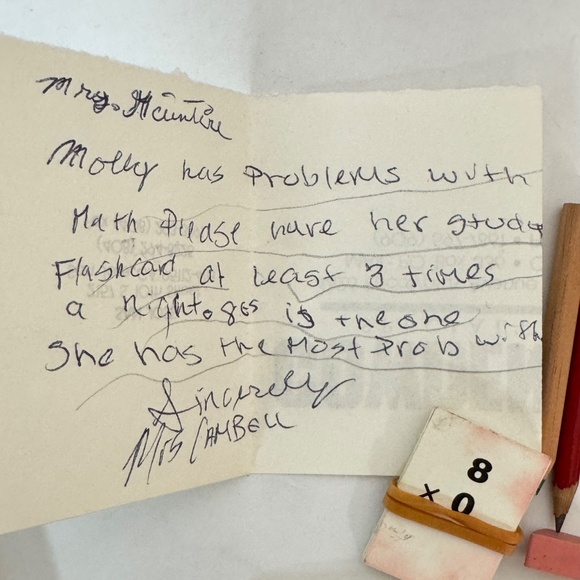 Mrs. Hcuntire
Molly has Problems with
Math Please have her study
Flashcard at Least 3 times
a night. 8es is the one
She has the Most Prob with
Sincerely
Mrs CAMBELL
8
x 0